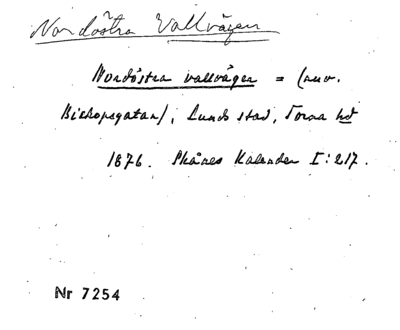 Nordöstra Vallvägen
Nordöstra vallvägen = (nuv.
Biskopsgatan), Lunds stad, Torna hd
1876. Skånes Kalender I:217.
Nr 7254